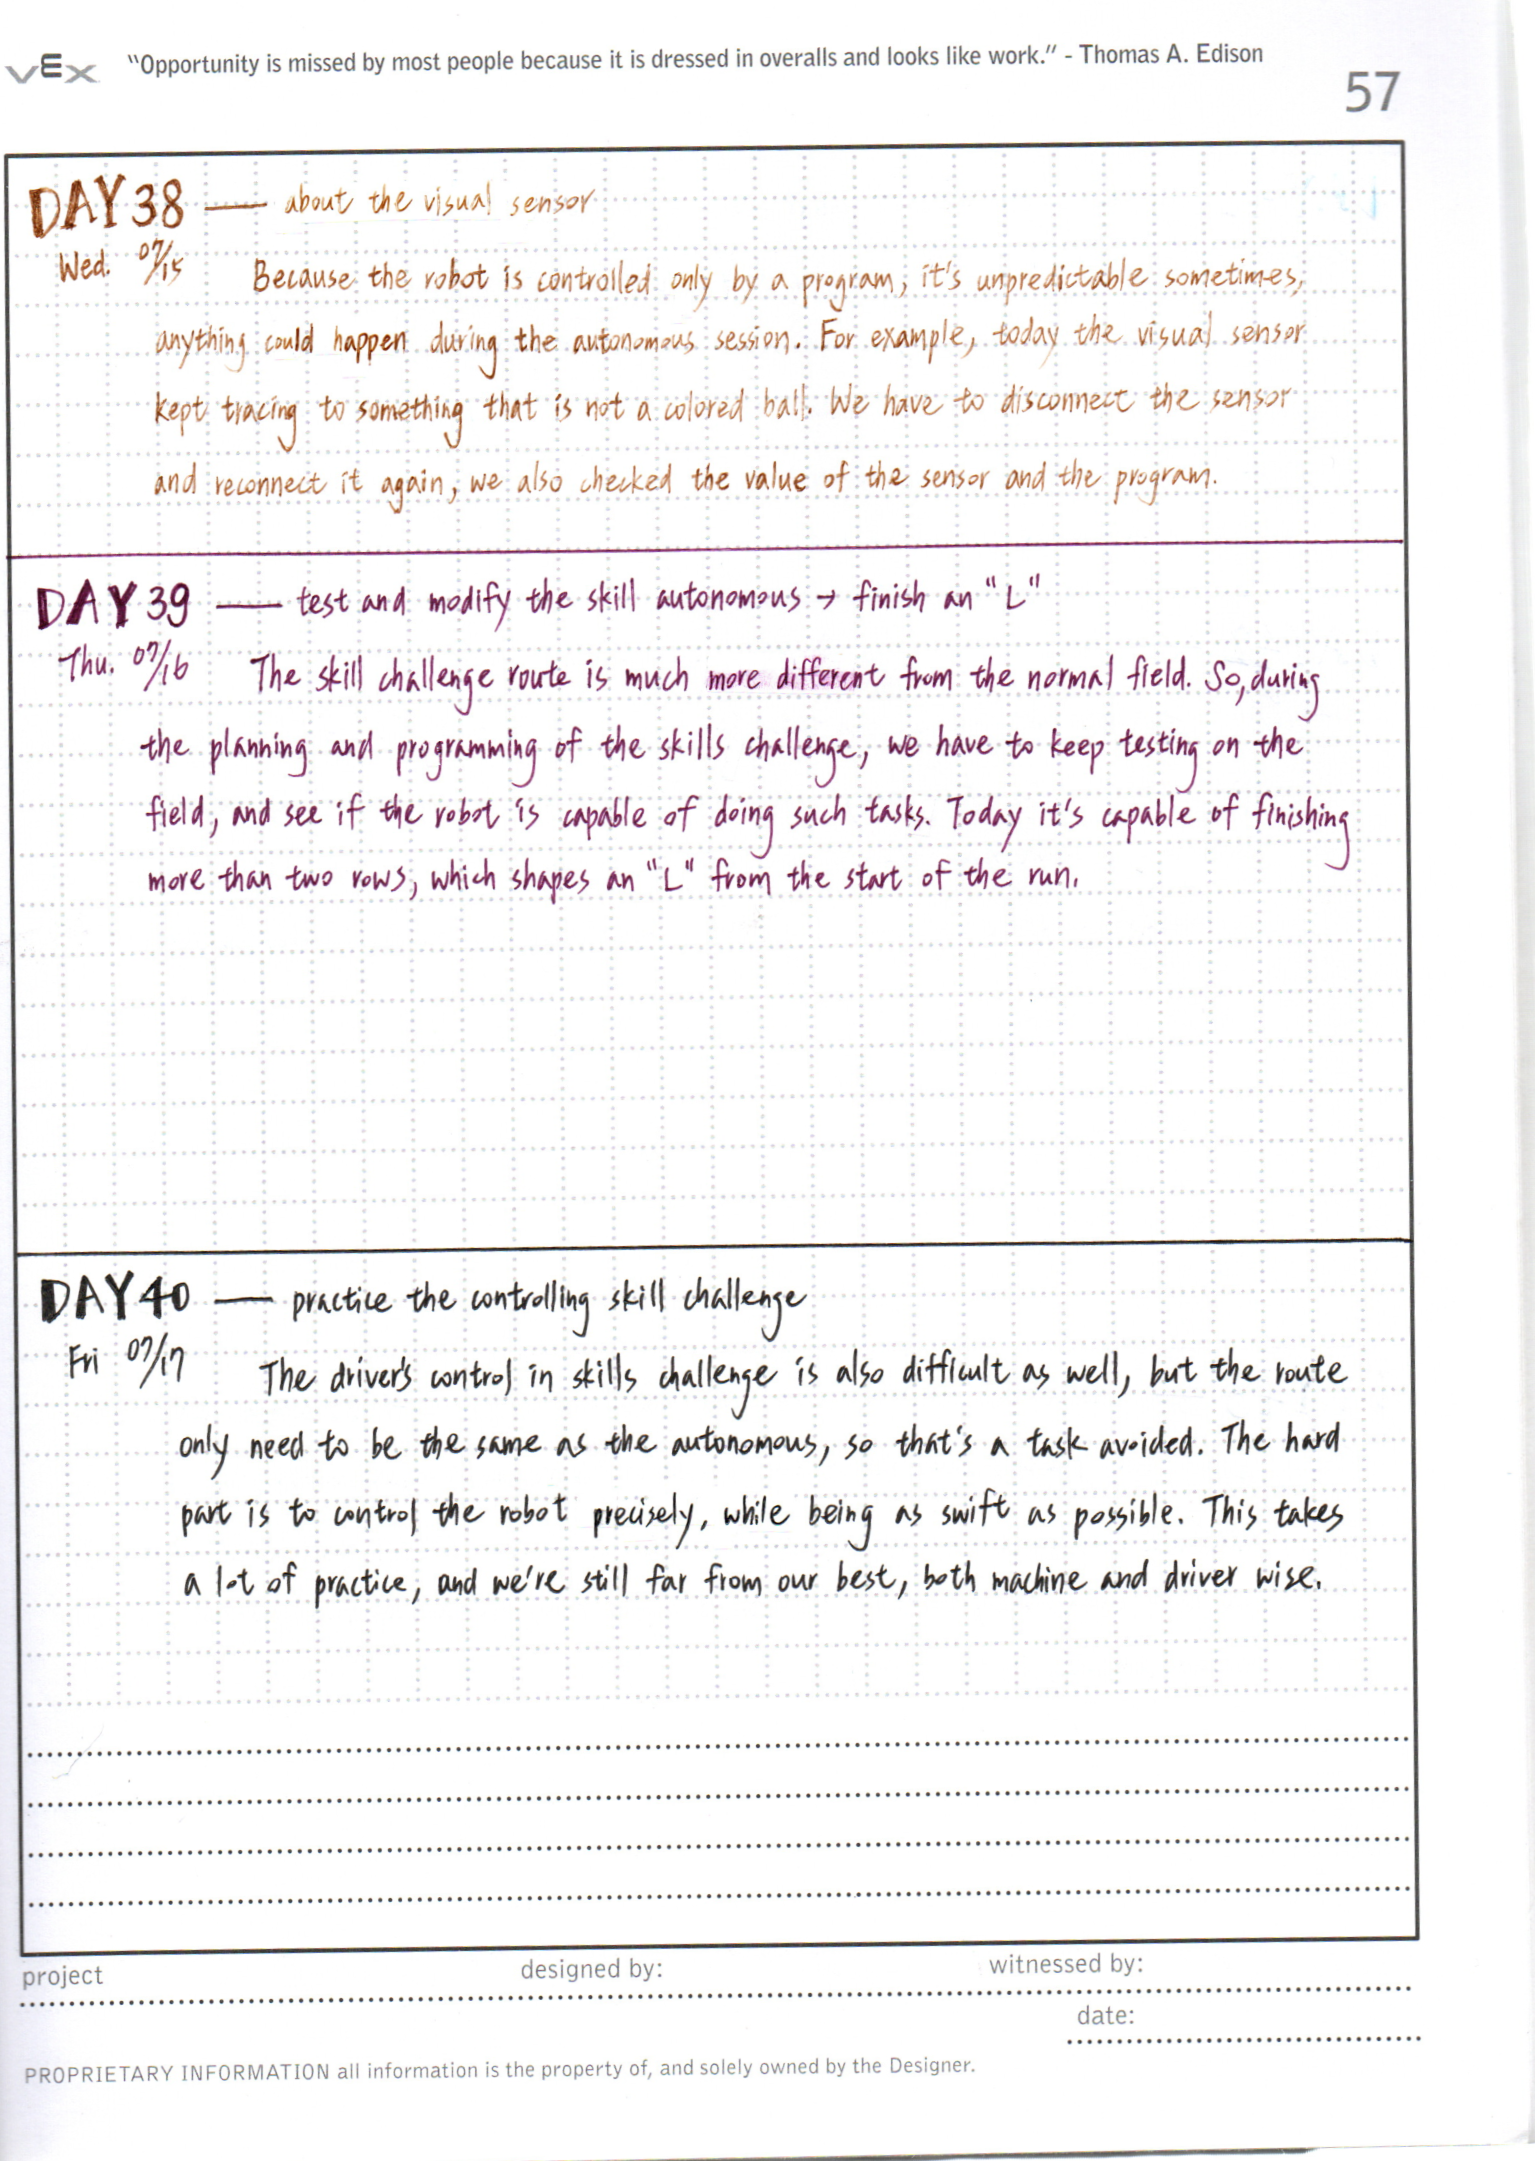 VEX "Opportunity is missed by most people because it is dressed in overalls and looks like work." - Thomas A. Edison
57
DAY 38 — about the visual sensor
Wed. 07/15 Because the robot is controlled only by a program, it's unpredictable sometimes,
anything could happen during the autonomous session. For example, today the visual sensor
kept tracing to something that is not a colored ball. We have to disconnect the sensor
and reconnect it again, we also checked the value of the sensor and the program.
DAY 39 — test and modify the skill autonomous → finish an "L"
Thu. 07/16 The skill challenge route is much more different from the normal field. So, during
the planning and programming of the skills challenge, we have to keep testing on the
field, and see if the robot is capable of doing such tasks. Today it's capable of finishing
more than two rows, which shapes an "L" from the start of the run.
DAY 40 — practice the controlling skill challenge
Fri 07/17 The driver's control in skills challenge is also difficult as well, but the route
only need to be the same as the autonomous, so that's a task avoided. The hard
part is to control the robot precisely, while being as swift as possible. This takes
a lot of practice, and we're still far from our best, both machine and driver wise.
project designed by: witnessed by:
date:
PROPRIETARY INFORMATION all information is the property of, and solely owned by the Designer.